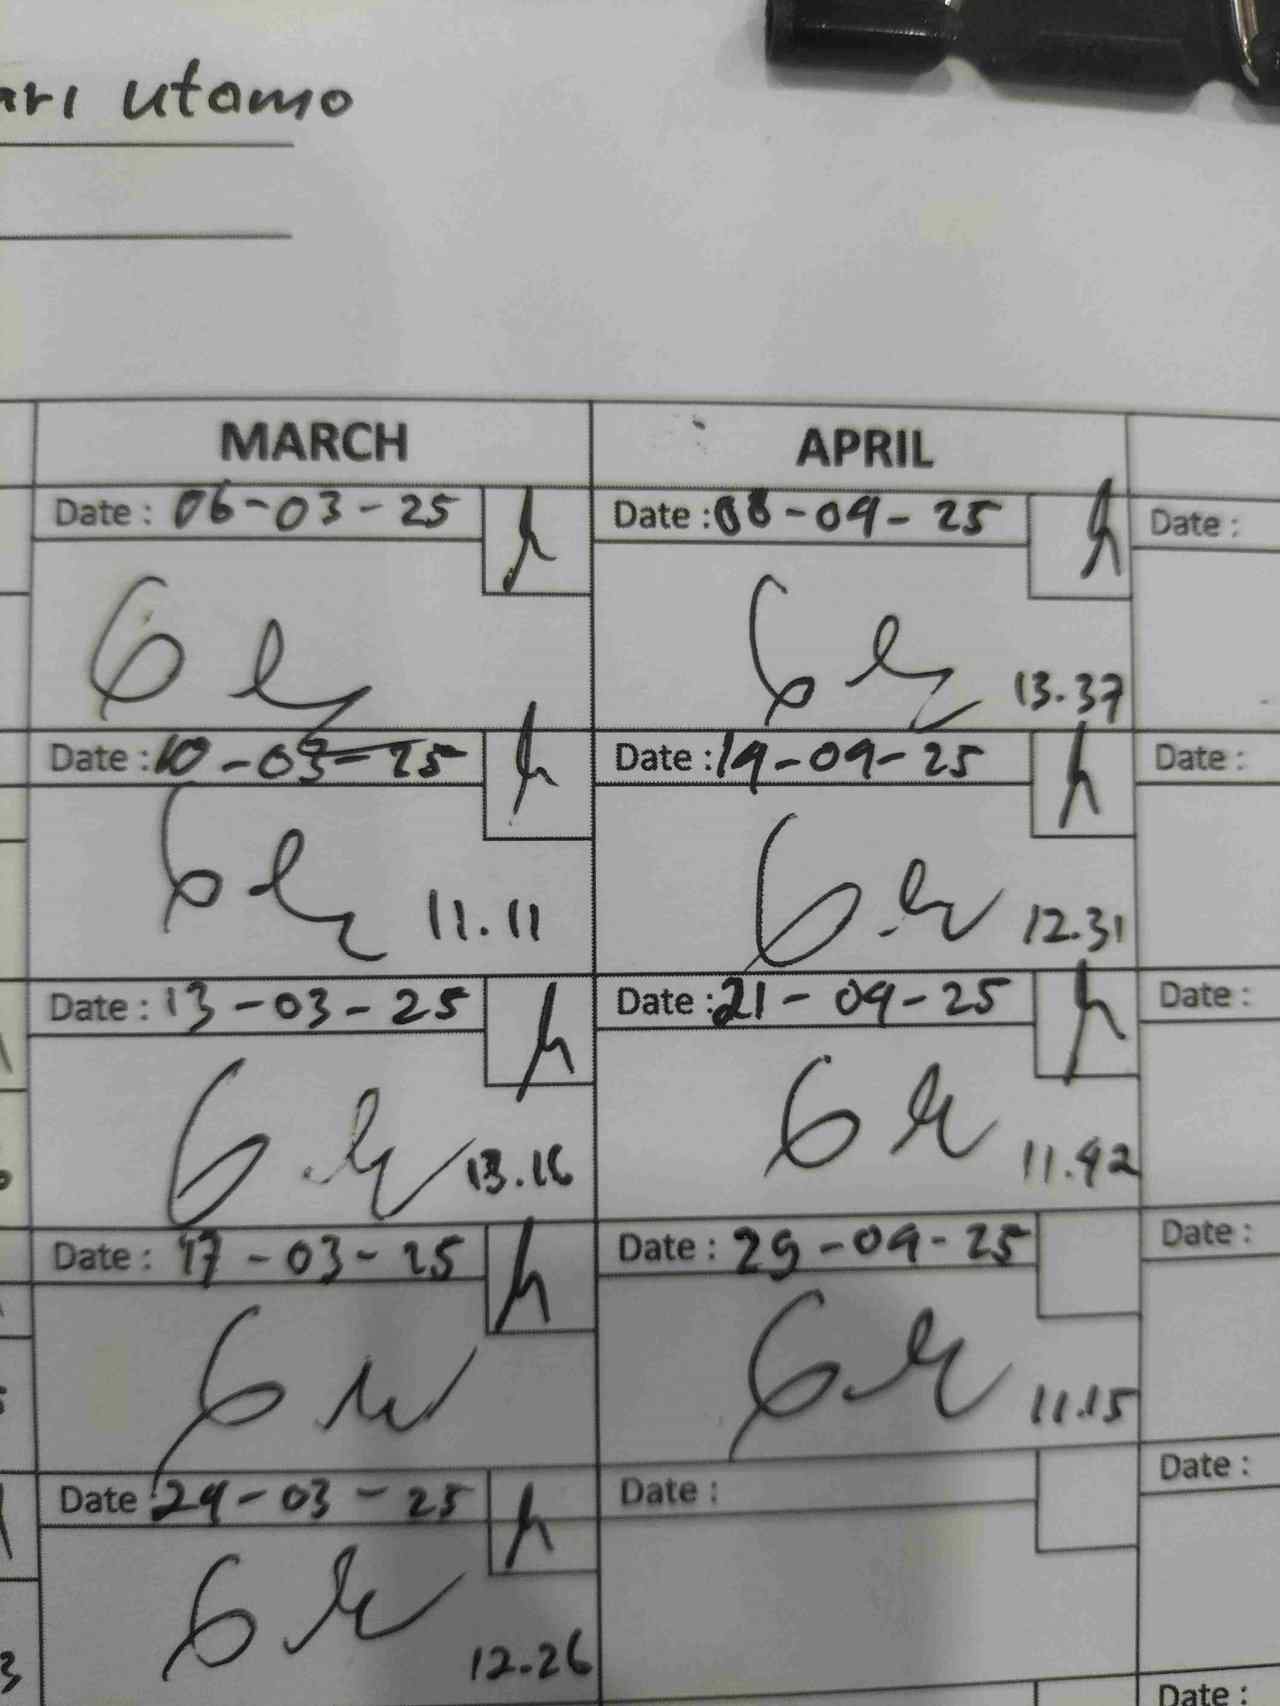 ari Utamo
MARCH
APRIL
Date : 06-03-25
Date : 08-04-25
Date :
13.37
Date : 10-03-25
Date : 14-04-25
Date :
11.11
12.31
Date : 13-03-25
Date : 21-04-25
Date :
13.16
11.42
Date : 17-03-25
Date : 29-04-25
Date :
11.15
Date : 24-03-25
Date :
Date :
12.26
Date :